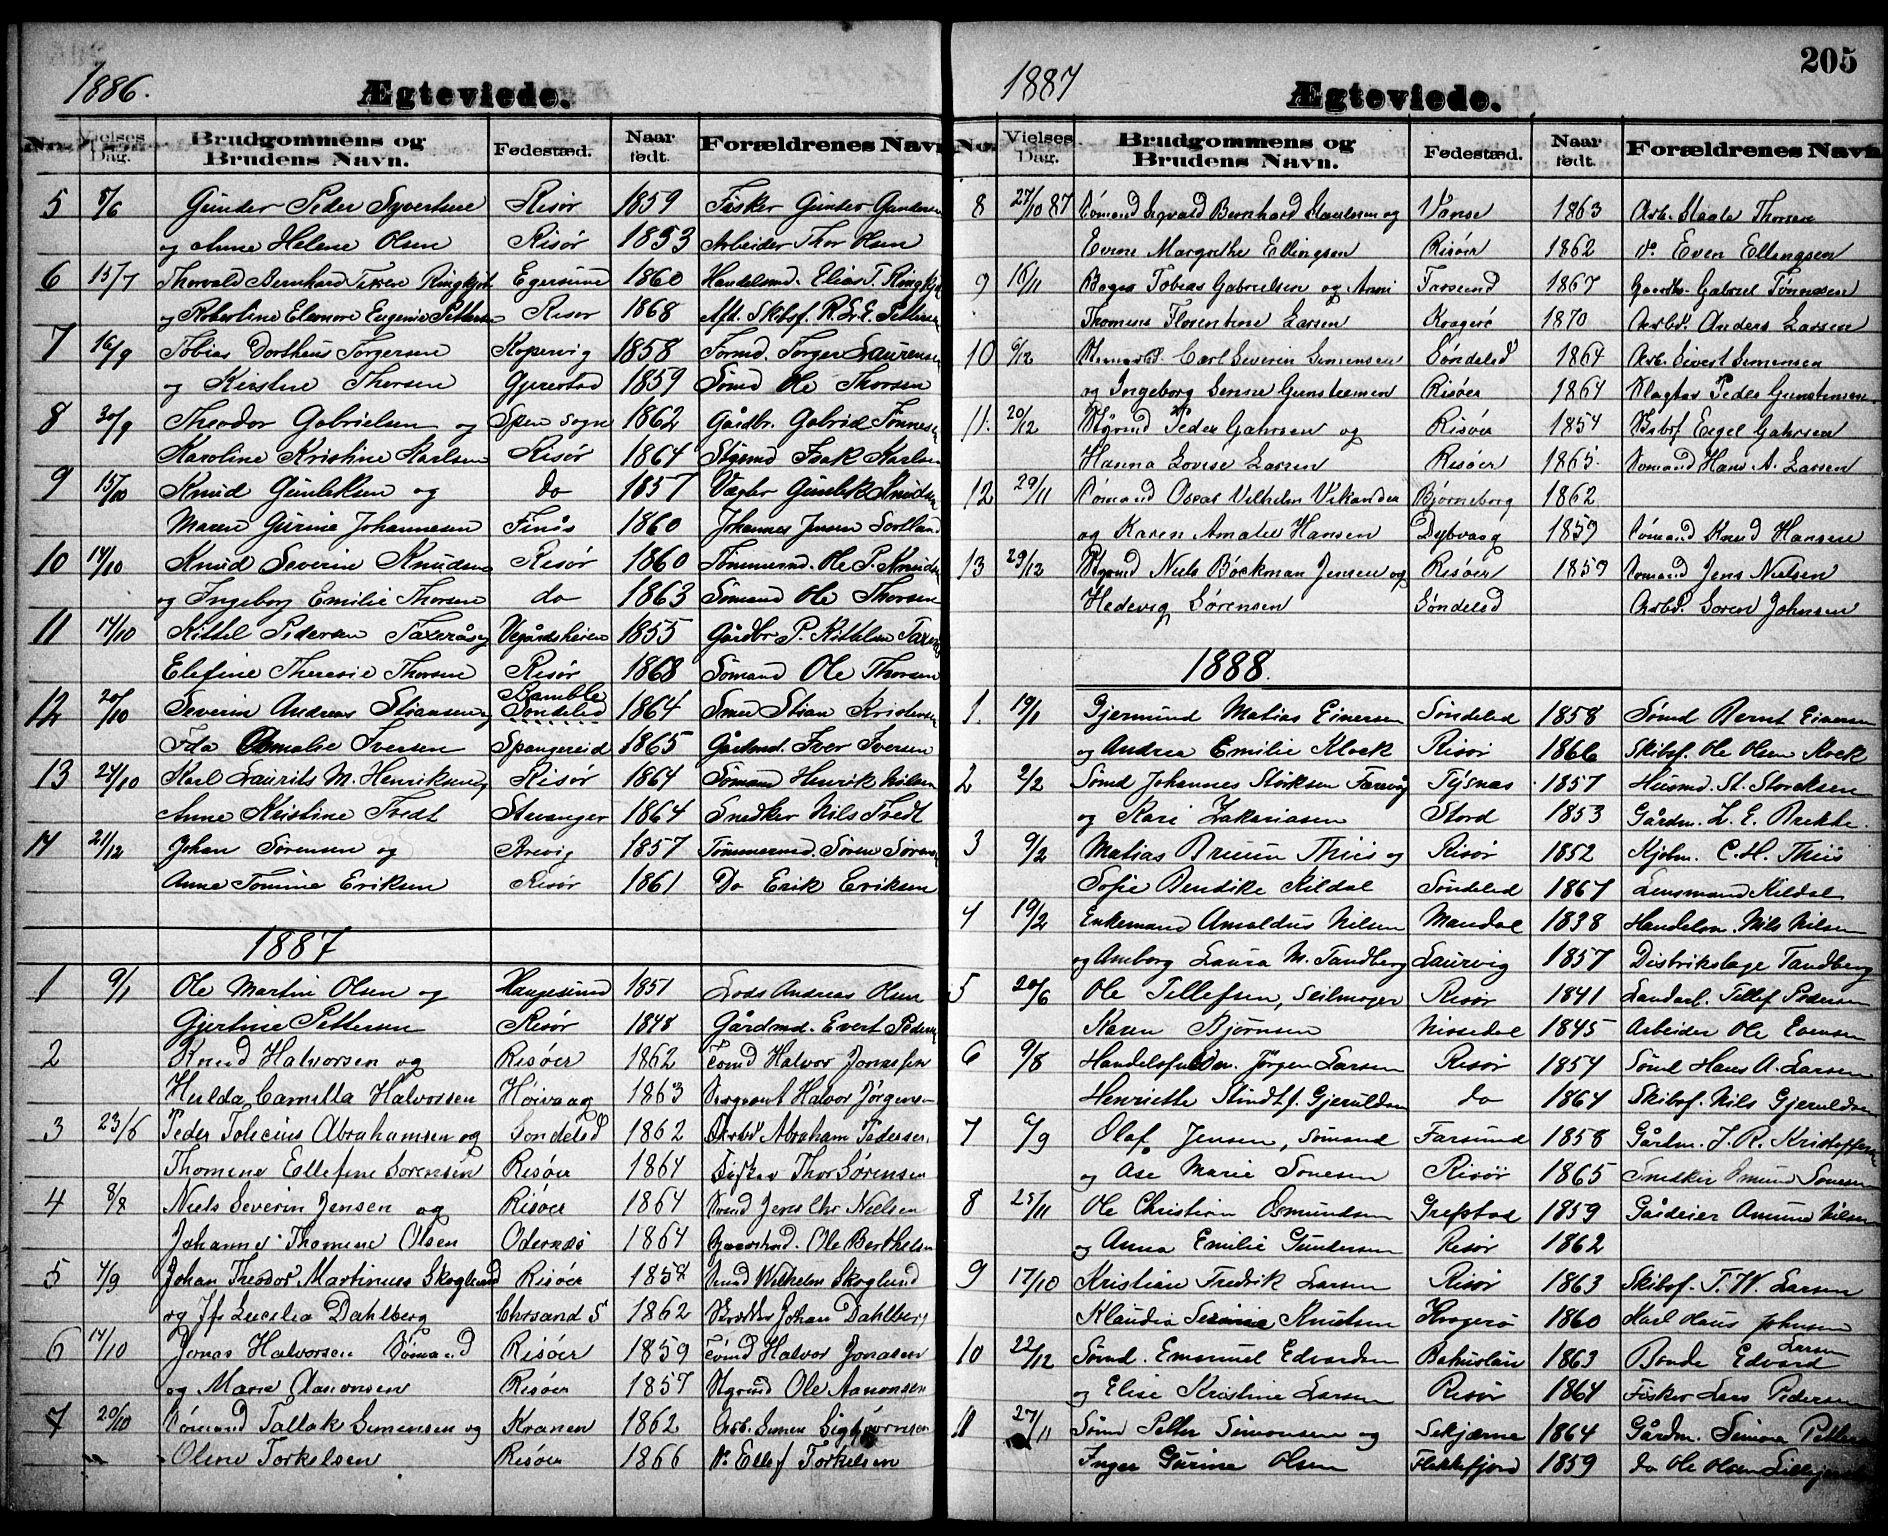 1886.
Ægteviede.
No. Vielses Dag. Brudgommens og Brudens Navn. Fødested. Naar født. Forældrenes Navn
5 5/6 Gunder Peder Syvertsen Risør 1859 Fisker Gunder Gundersen
og Anne Helene Olsen Risør 1853 Arbeider Thor Olsen
6 15/7 Thorvald Bernhard Egersund 1860 Handelsmd. Elias T.
og Robertine Elenore Eugenie Pettersen Risør 1868 Aft. Skibsf. Pettersen
7 16/9 Tobias Dortheus Torgersen Kopervig 1858 Formd. Torger Laurensen
og Kirstine Thorsen Gjerestad 1859 Sømd Ole Thorsen
8 30/9 Theodor Gabrielsen og Spen sogn 1862 Gårdbr. Gabriel Tønnesen
Karoline Kristine Karlsen Risør 1864 Isak Karlsen
9 15/10 Knud Gunleksen og do 1857 Gunlek Knudsen
Maren Gurine Johannesen Finås 1860 Johannes Jensen Sortland
10 14/10 Knud Severin Knudsen Risør 1860 Tømmermd. Ole P. Knudsen
og Ingeborg Emilie Thorsen do 1863 Sømand Ole Thorsen
11 14/10 Kittel Pedersen Vegårdsheien 1855 Gårdbr. P. Kittelsen
Elefine Theresie Thorsen Risør 1868 Sømand Ole Thorsen
12 20/10 Severin Andreas Stiansen og Bamble Søndeled 1864 Smed Stian Kristensen
Ida Amalie Iversen Spangereid 1865 Gårdmd. Iver Iversen
13 24/10 Karl Laurits M. Henriksen og Risør 1864 Sømand Henrik Nilsen
Anne Kristine Tvedt Stavanger 1864 Snedker Nils Tvedt
14 21/12 Johan Sørensen og Brevig 1857 Tømmermd. Søren Sørensen
Anne Tomine Eriksen Risør 1861 Do Erik Eriksen
1887
1 9/1 Ole Martin Olsen og Haugesund 1851 Lods Andreas Olsen
Gjertine Pettersen Risør 1848 Gårdmd. Evert Pedersen
2 Knud Halvorsen og Risøer 1862 Sømd Halvor Jonassen
Hulda Camilla Halvorsen Høivaag 1863 Sergeant Halvor Jørgensen
3 23/6 Peder Tolicius Abrahamsen og Søndeled 1862 Arbd Abraham Pedersen
Thomene Ellefine Sørensen Risøer 1864 Fisker Thor Sørensen
4 8/8 Niels Severin Jensen og Risøer 1864 Sømd Jens Chr Nielsen
Johanne Thomene Olsen Odernæs 1864 Gaardmd. Ole Berthelsen
5 4/9 Johan Theodor Martinus Skoglund Risøer 1857 Smed Wilhelm Skoglund
og Lucilia Dahlberg Chrsand S 1862 Johan Dahlberg
6 14/10 Jonas Halvorsen Sømand Risøer 1859 Sømd Halvor Jonasen
og Marie Aanonsen Risøer 1857 Styrmd Ole Aanonsen
7 20/10 Sømand Tallak Simensen og Kranen 1862 Arb. Simen Sigbjørnsen
Oline Torkelsen Risøer 1866 Do Ellef Torkelsen
205
1887
Ægteviede.
No. Vielses Dag. Brudgommens og Brudens Navn. Fødested. Naar født. Forældrenes Navn
8 27/10 87 Sømand Sigvald Bernhard Staalesen og Vanse 1863 Arb. Staale Thorsen
Evine Margrethe Ellingsen Risøer 1862 Do Even Ellingsen
9 16/11 Tobias Gabrielsen og Anne Farsund 1867 Gaardbr. Gabriel Tønnesen
Thomine Florentine Larsen Kragerø 1870 Arbd. Anders Larsen
10 6/12 Carl Severin Simensen Søndeled 1864 Arb. Sivert Simensen
og Ingeborg Gunstensen Risøer 1864 Peder Gunstensen
11. 20/12 Styrmd Peder Gahrsen og Risøer 1854 Skibsf Engel Gahrsen
Hanna Lovise Larsen Risøer 1865. Sømand Hans A. Larsen
12 29/11 Sømand Oscar Vilhelm Vikander Bjørneborg 1862
og Karen Amalie Hansen Dybvaag 1859 Sømand Knud Hansen
13 29/12 Styrmd Niels Bøckman Jensen og Risøer 1859 Sømand Jens Nielsen
Hedevig Sørensen Søndeled Arbd. Søren Johnsen
1888.
1. 19/1 Gjermund Matias Einersen Søndeled 1858 Sømd Bernt Einersen
og Andrea Emilie Klock Risør 1866 Skibsf. Ole Olsen
2 2/2 Sømd Johannes Størksen Tysnæs 1857 Husmd. St. Storeksen
og Kari Zakariasen Stord 1853 Gårdm. Z. E. Brekke.
3 9/2 Matias Bruun Thiis og Risør 1852 Kjøbm. C. H. Thiis
Sofie Bendike Kildal Søndeled 1867 Lensmand Kildal
4 19/2 Enkemand Arnoldus Nilsen Mandal 1838 Handelsm. Nils Nilsen
og Amborg Laura M. Tandberg Laurvig 1857 Distriktslæge Tandberg
5 20/6 Ole Tellefsen, Seilmager Risør 1841 Landarb. Tellef Pedersen
Karen Bjørnsen Nissedal 1845 Arbeider Ole Evensen
6 9/8 Jørgen Larsen Risør 1854 Sømd Hans A. Larsen
Henriette f. Gjeruldsen do 1864 Skibsf. Nils Gjeruldsen
7 6/9 Olaf Jensen, Sømand Farsund 1858 Gårdm. J. R. Kristoffersen
og Ase Marie Tonesen Risør 1865 Snedker Omund Tonesen
8 25/11 Ole Christian Osmundsen Grefstad 1859 Gårdeier Amund Nilsen
og Anna Emilie Gundersen Risør 1862
9 17/10 Kristian Fredrik Larsen Risør 1863 Skibsf. T. W. Larsen
Klaudia Serine Knutsen Kragerø 1860 Karl Haus Johnsen
10 22/12 Sømd. Emanuel Edvardsen Bahuslän 1863 Bonde Edvard Larsen
og Elise Kristine Larsen Risør 1864 Fisker Lars Pedersen
11 27/11 Sømd Petter Simonsen og Sekjærne 1864 Gårdm. Simon Petter
Inger Gurine Olsen Flekkefjord 1859 do Ole Olsen